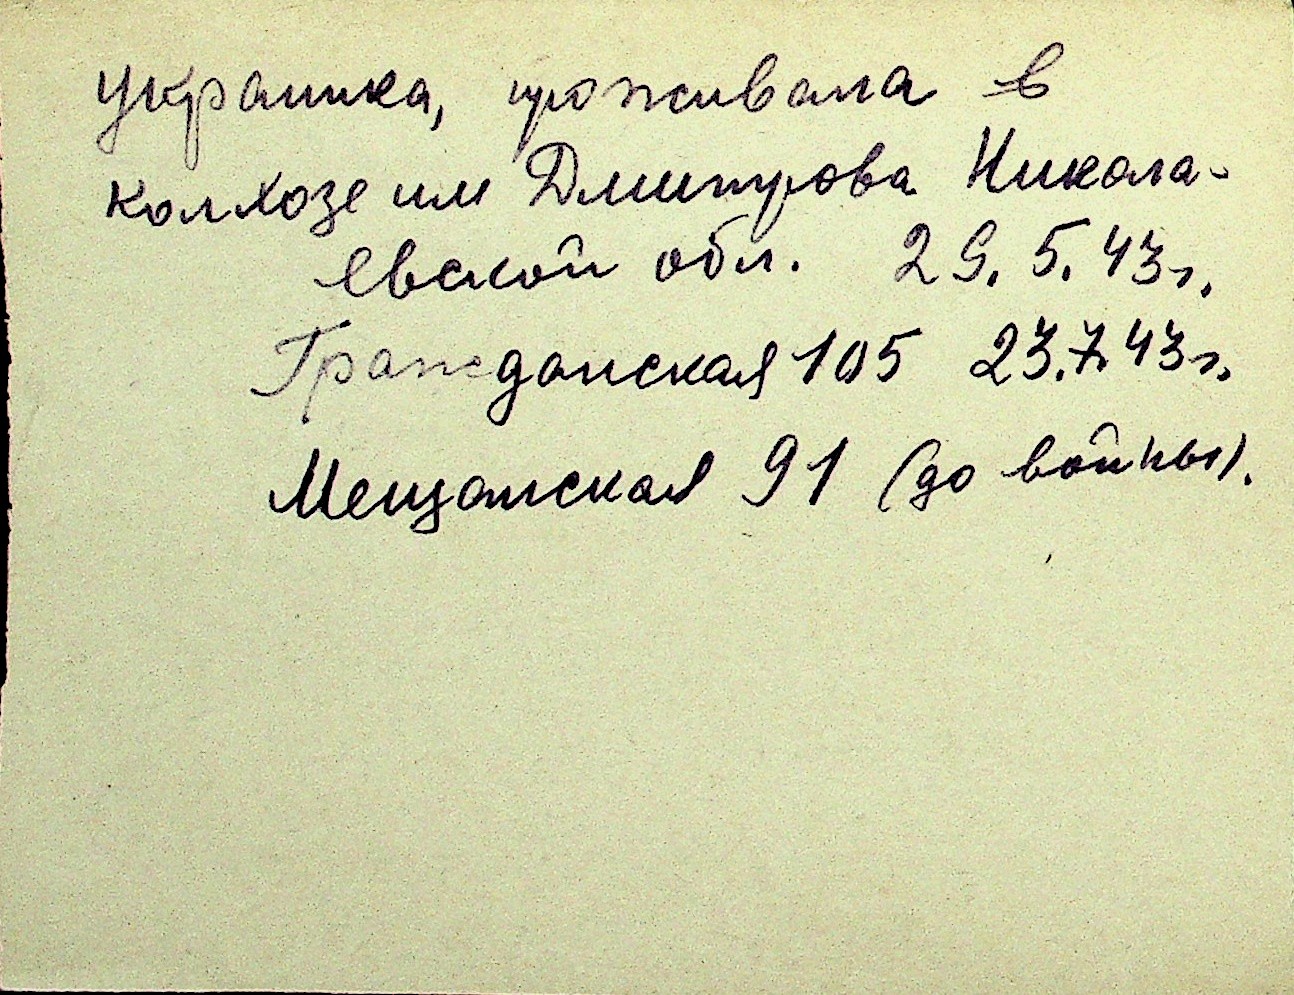 украинка, проживала в
колхозе им Дмитрова Никола-
евской обл. 29.5.43г.
Гражданская 105 23.7.43г.
Мещанская 91 (до войны).